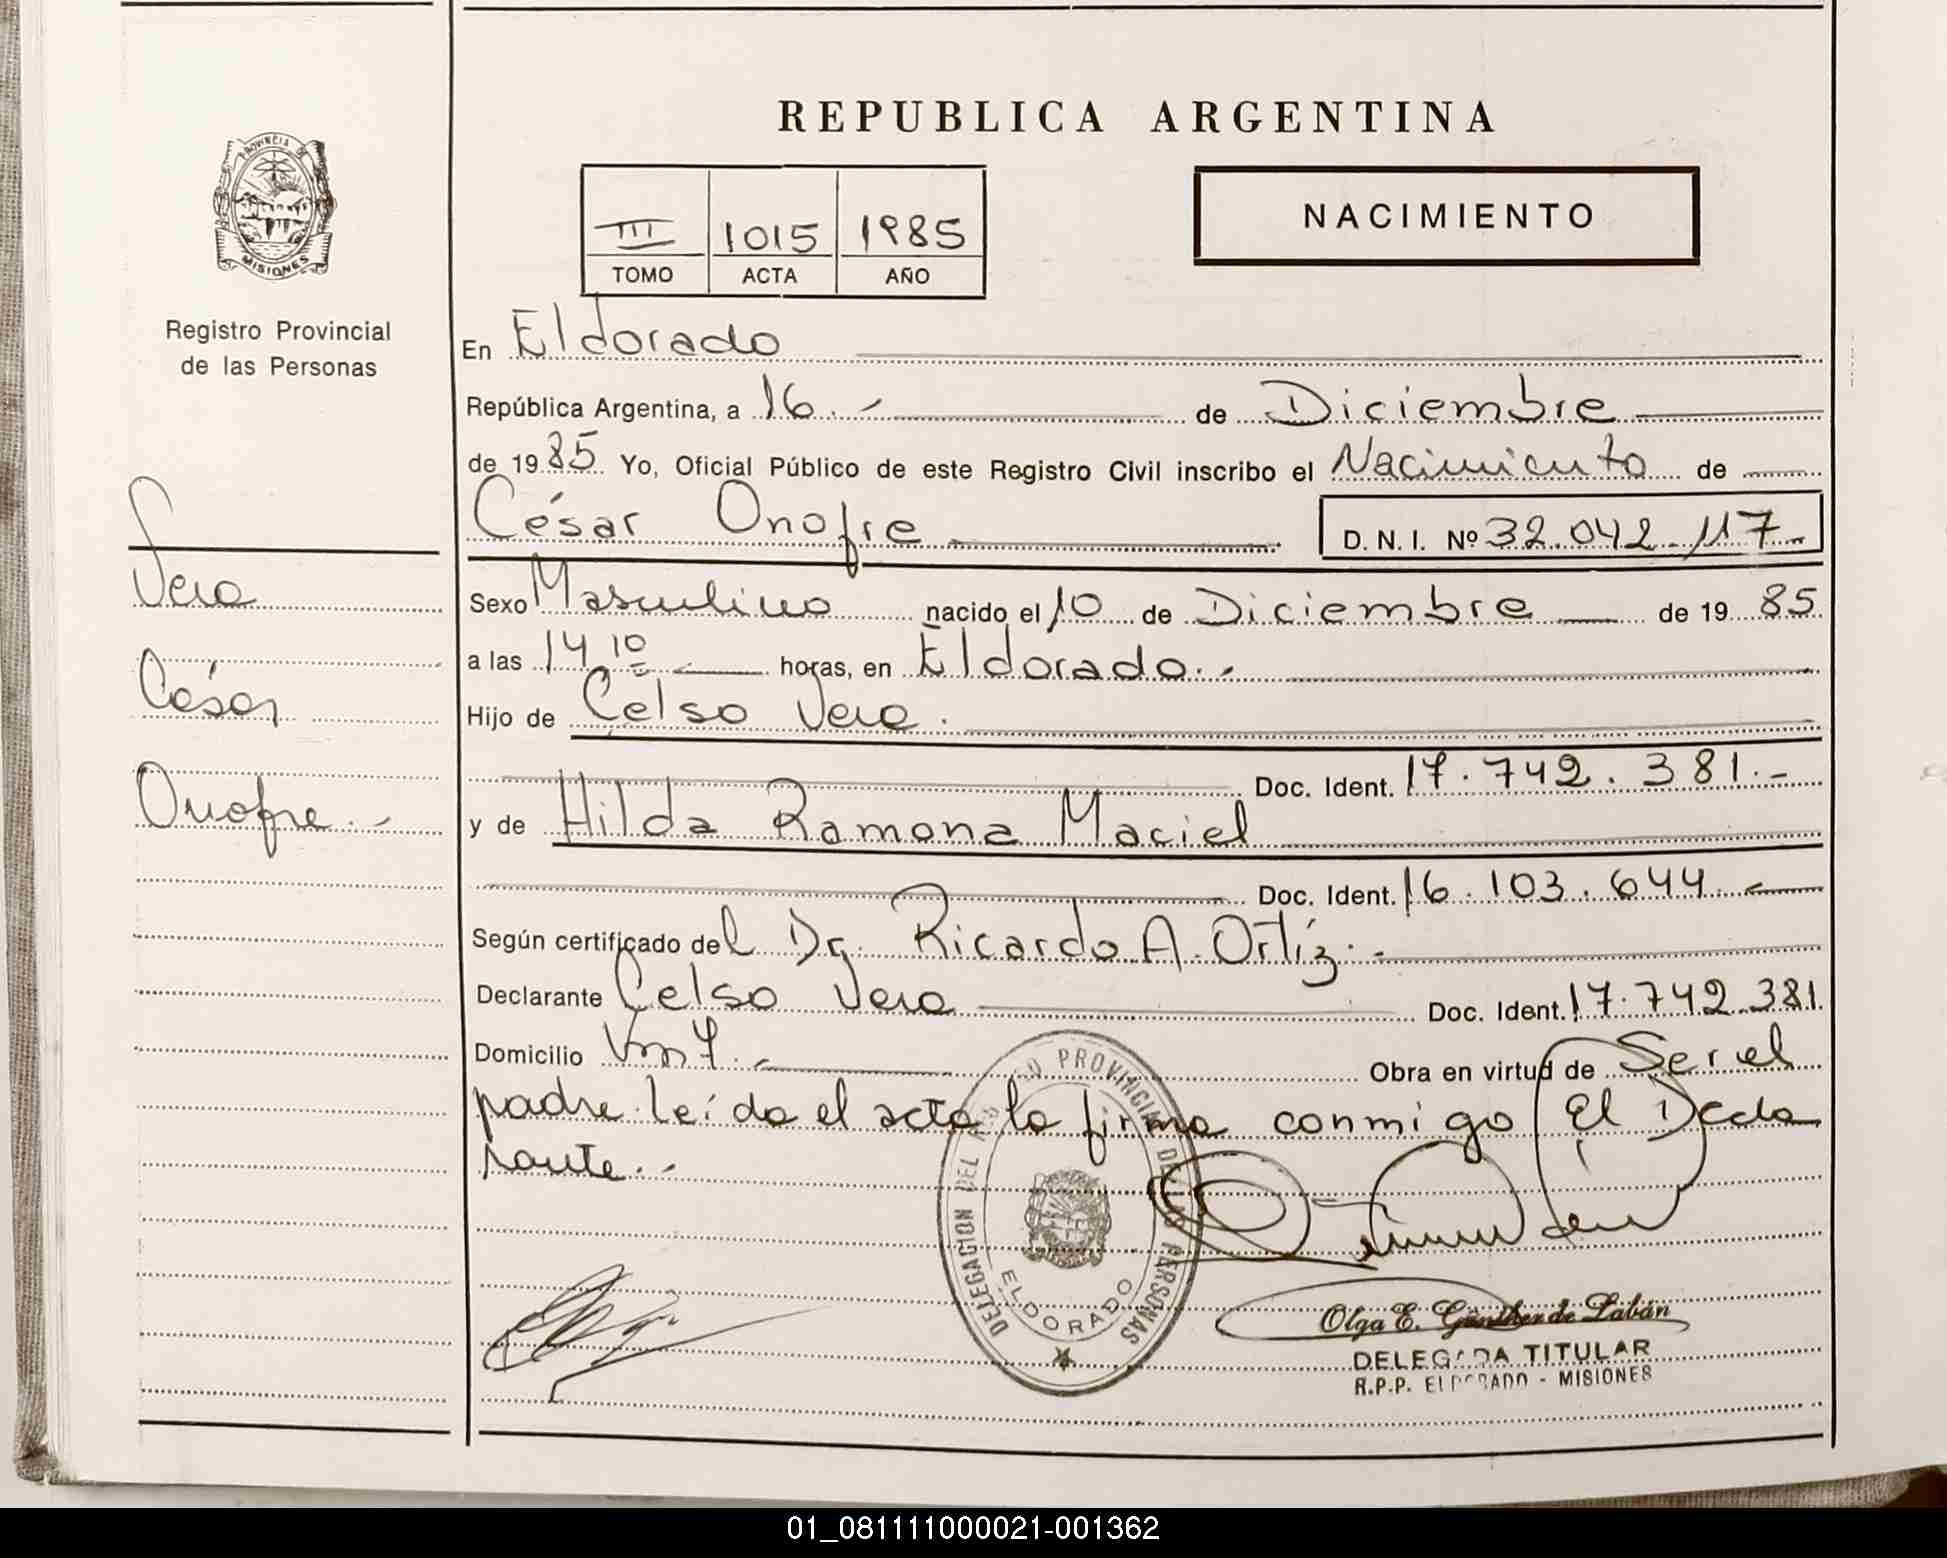 REPUBLICA ARGENTINA
PROVINCIA DE
MISIONES
Registro Provincial
de las Personas
III 1015 1985
TOMO ACTA AÑO
NACIMIENTO
En Eldorado
República Argentina, a 16.- de Diciembre
de 1985 Yo, Oficial Público de este Registro Civil inscribo el Nacimiento de
César Onofre D. N. I. Nº 32.042.117
Sexo Masculino nacido el 10 de Diciembre de 1985
a las 14 10 horas, en Eldorado.-
Hijo de Celso Vera.
Doc. Ident. 17.742.381.-
y de Hilda Ramona Maciel
Doc. Ident. 16.103.644
Según certificado del Dr. Ricardo A. Ortíz.-
Declarante Celso Vera Doc. Ident. 17.742.381.
Domicilio Km 7.- Obra en virtud de Ser el
padre. Leída el acta la firma conmigo El Decla
rante.-
Vera
César
Onofre.-
DELEGACION DEL REGISTRO PROVINCIAL DE LAS PERSONAS
ELDORADO
Olga E. Günther de Labán
DELEGADA TITULAR
R.P.P. ELDORADO - MISIONES
01_081111000021-001362